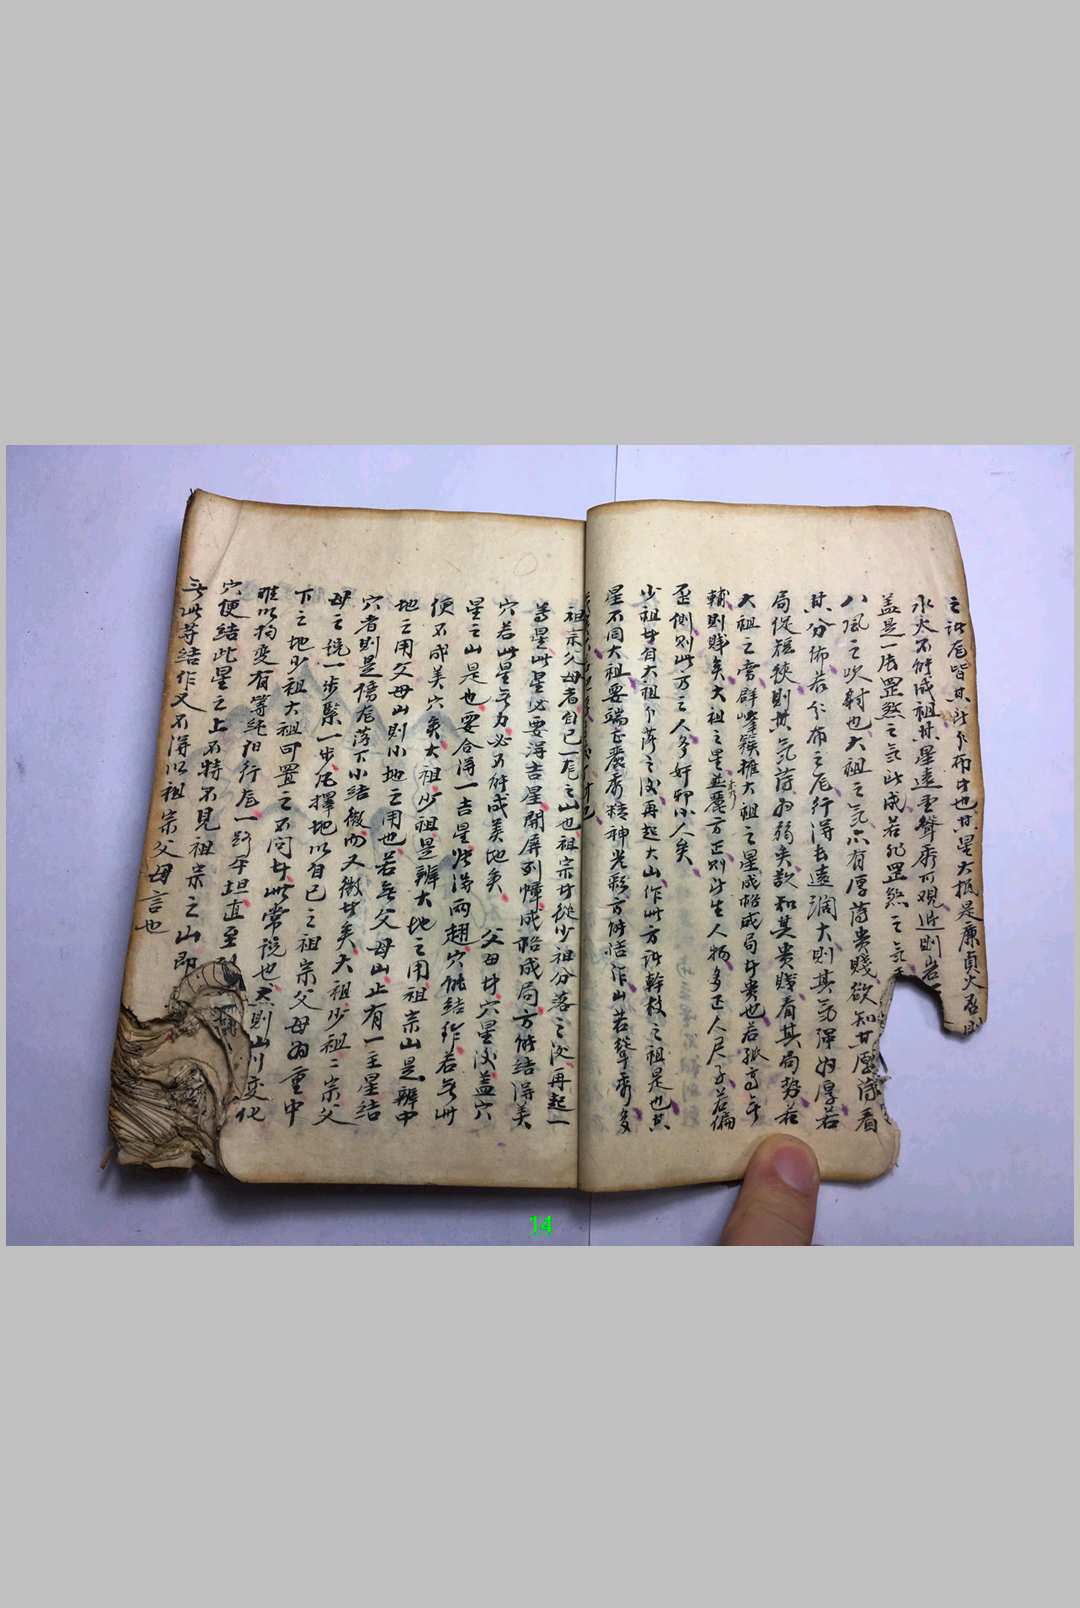 之訣龙皆其所分布者也其星大抵是廉貞火否則
水火不能成祖其星遠重聳秀可观近則岩
盖是一片罡煞之気此成若非罡煞之気
八風之吹射也大祖之気亦有厚薄贵賤欲知其厚薄看
其分佈若分布之龙行得去遠濶大則其気渾为厚若
局促窄狹則其気薄为弱矣欲知其贵賤看其局势若
大祖之旁群峰簇擁大祖之星成格成局者贵也若孤高乍
輔則賤矣大祖之星並麗方正則此生人物多正人尺子若偏
歪側則此方之人多奸邪小人矣
少祖者自大祖分落之後再起大山作此方訣幹枝之祖是也其
星不同大祖要端正麗秀精神光彩方能結作山若聳秀多
祖宗父母者自已一龙之山也祖宗者從少祖分落之後再起一
等星此星必要得吉星開屏列幛成格成局方能結得美
穴若此星無力必不能成美地矣 父母者穴星後盖穴
星之山是也要合得一吉星皆得两翅穴能結作若無此
便不成美穴矣大祖少祖是辨大地之用祖宗山是辨中
地之用父母山則小地之用也若無父母山止有一主星結
穴者則是傍龙落下小结微而又微者矣大祖少祖二宗父
母之说一步緊一步龙擇地以自已之祖宗父母为重中
下之地少祖大祖可置之不问者此常说也然則山川变化
难以拘定有等純阳行龙一路平坦直至
穴便結此星之上不特不見祖宗之山即
無此等結作又不得以祖宗父母言也
14